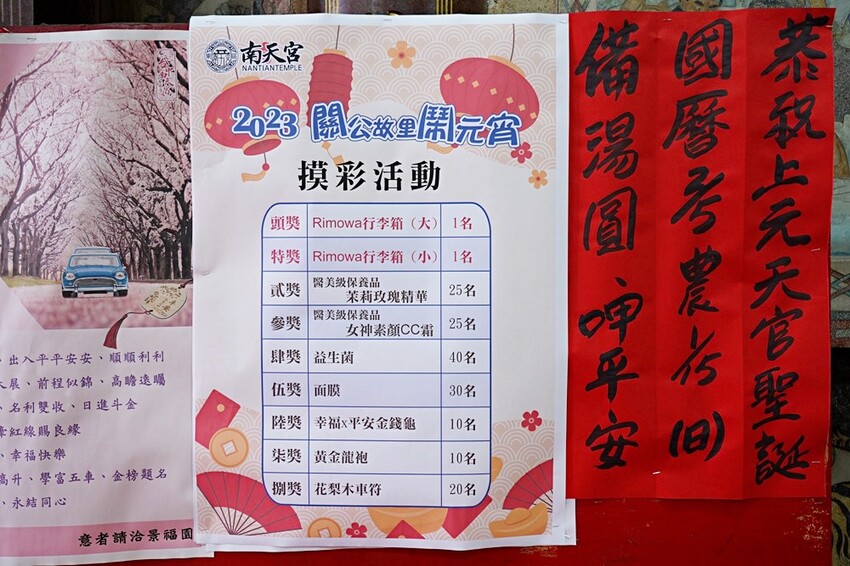 出入平平安安、順順利利
大展、前程似錦、高瞻遠矚
、名利雙收、日進斗金
牽紅線賜良緣
、幸福快樂
高升、學富五車、金榜題名
、永結同心
意者請洽景福圓
南天宮
NANTIANTEMPLE
2023 關公故里鬧元宵
摸彩活動
頭獎 Rimowa行李箱（大） 1名
特獎 Rimowa行李箱（小） 1名
貳獎 醫美級保養品 茉莉玫瑰精華 25名
參獎 醫美級保養品 女神素顏CC霜 25名
肆獎 益生菌 40名
伍獎 面膜 30名
陸獎 幸福x平安金錢龜 10名
柒獎 黃金龍袍 10名
捌獎 花梨木車符 20名
恭祝上元天官聖誕
國曆 農 (日)
備湯圓呷平安